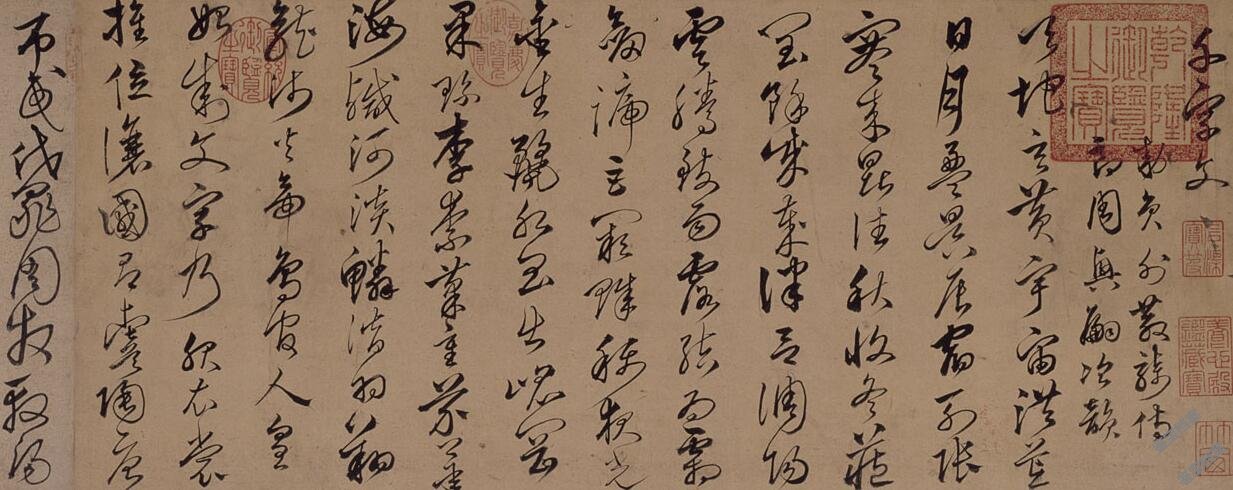 千字文
勅員外散騎侍
郎周興嗣次韻
天地玄黃宇宙洪荒
日月盈昃辰宿列張
寒來暑往秋收冬藏
閏餘成歲律呂調陽
雲騰致雨露結為霜
劍號巨闕珠稱夜光
金生麗水玉出崑岡
果珍李柰菜重芥薑
海鹹河淡鱗潛羽翔
龍師火帝鳥官人皇
始制文字乃服衣裳
推位讓國有虞陶唐
弔民伐罪周發殷湯
乾隆御覽之寶
嘉慶御覽之寶
養心殿鑑藏寶